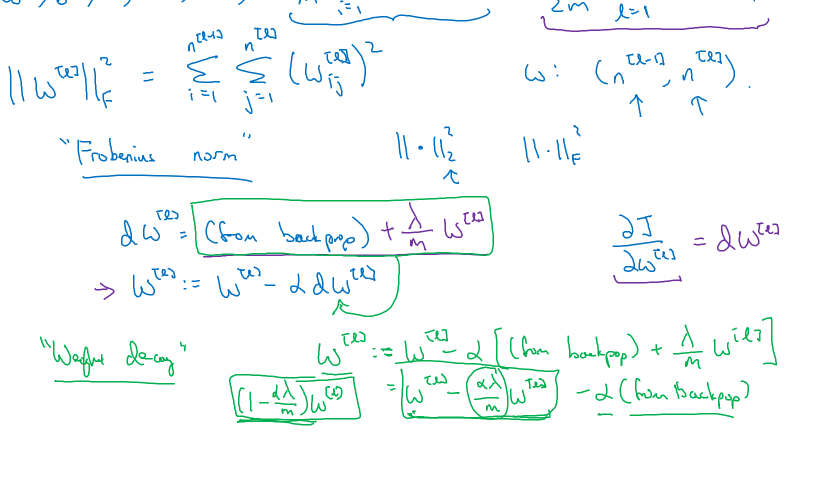 i=1 2m l=1
||w^[l]||_F^2 = Σ_{i=1}^{n^[l-1]} Σ_{j=1}^{n^[l]} (w_ij^[l])^2 w: (n^[l-1], n^[l]).
"Frobenius norm" ||·||_2^2 ||·||_F^2
dw^[l] = (from backprop) + λ/m w^[l] ∂J/∂w^[l] = dw^[l]
→ w^[l] := w^[l] - α dw^[l]
"Weight decay" w^[l] := w^[l] - α [(from backpop) + λ/m w^[l]]
(1 - αλ/m) w^[l] = w^[l] - αλ/m w^[l] - α (from backpop)